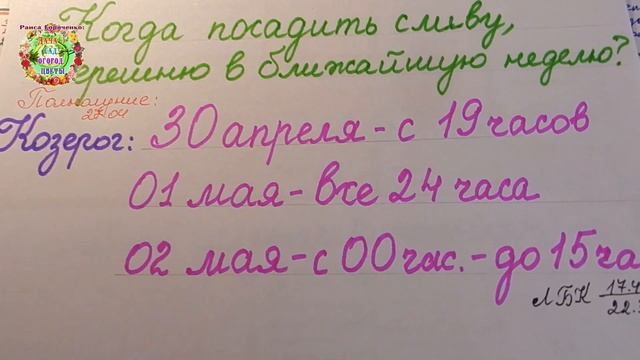 Раиса Горяченко:
ДАЧА
САД
ОГОРОД
ЦВЕТЫ
Когда посадить сливу,
черешню в ближайшую неделю?
Полнолуние:
27.04
Козерог: 30 апреля - с 19 часов
01 мая - все 24 часа
02 мая - с 00 час. - до 15 ча
ЛБК 17.4
22.